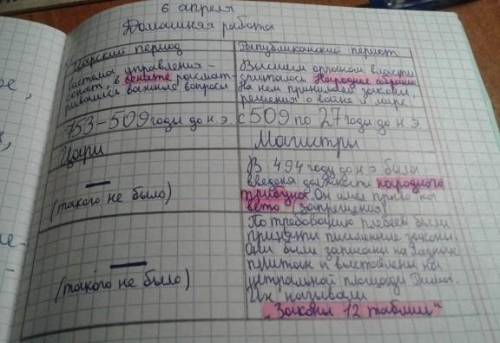 6 апреля
Домашняя работа
Царский период
Республиканский период
Система управления -
сенат, в сенате рассмат-
ривались важные вопросы
Высшим органом власти
считалось Народное собрание
На нем принимали законы
решения о войне и мире.
753-509 годы до н э.
с 509 по 27 годы до н э
Цари
Магистры
—
(такого не было)
В 494 году до н э была
введена должность народного
трибуна. Он имел право на
вето (запрещения)
—
(такого не было)
По требованию плебеев были
приняты письменные законы.
Они были записаны на
плитах и выставлены на
центральной площади Рима.
Их называли
"Законы 12 таблиц"